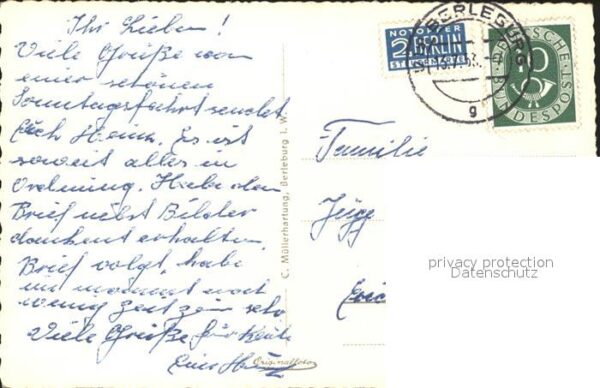 Ihr Lieben!
Viele Grüße von
einer schönen
Sonntagsfahrt sendet
Euch Hans. Es ist
soweit alles in
Ordnung. Habe den
Brief nebst Bilder
dankent erhalten.
Brief volgt, habe
im moment noch
wenig Zeit
Viele Grüße für Heute
Euer
Originalfoto
C. Müllerhartung, Berleburg i. W.
NOTOPFER
2 BERLIN
STEUERMARKE
BERLEBURG
g
DEUTSCHE
BUNDESPOST
10
Familie
privacy protection
Datenschutz